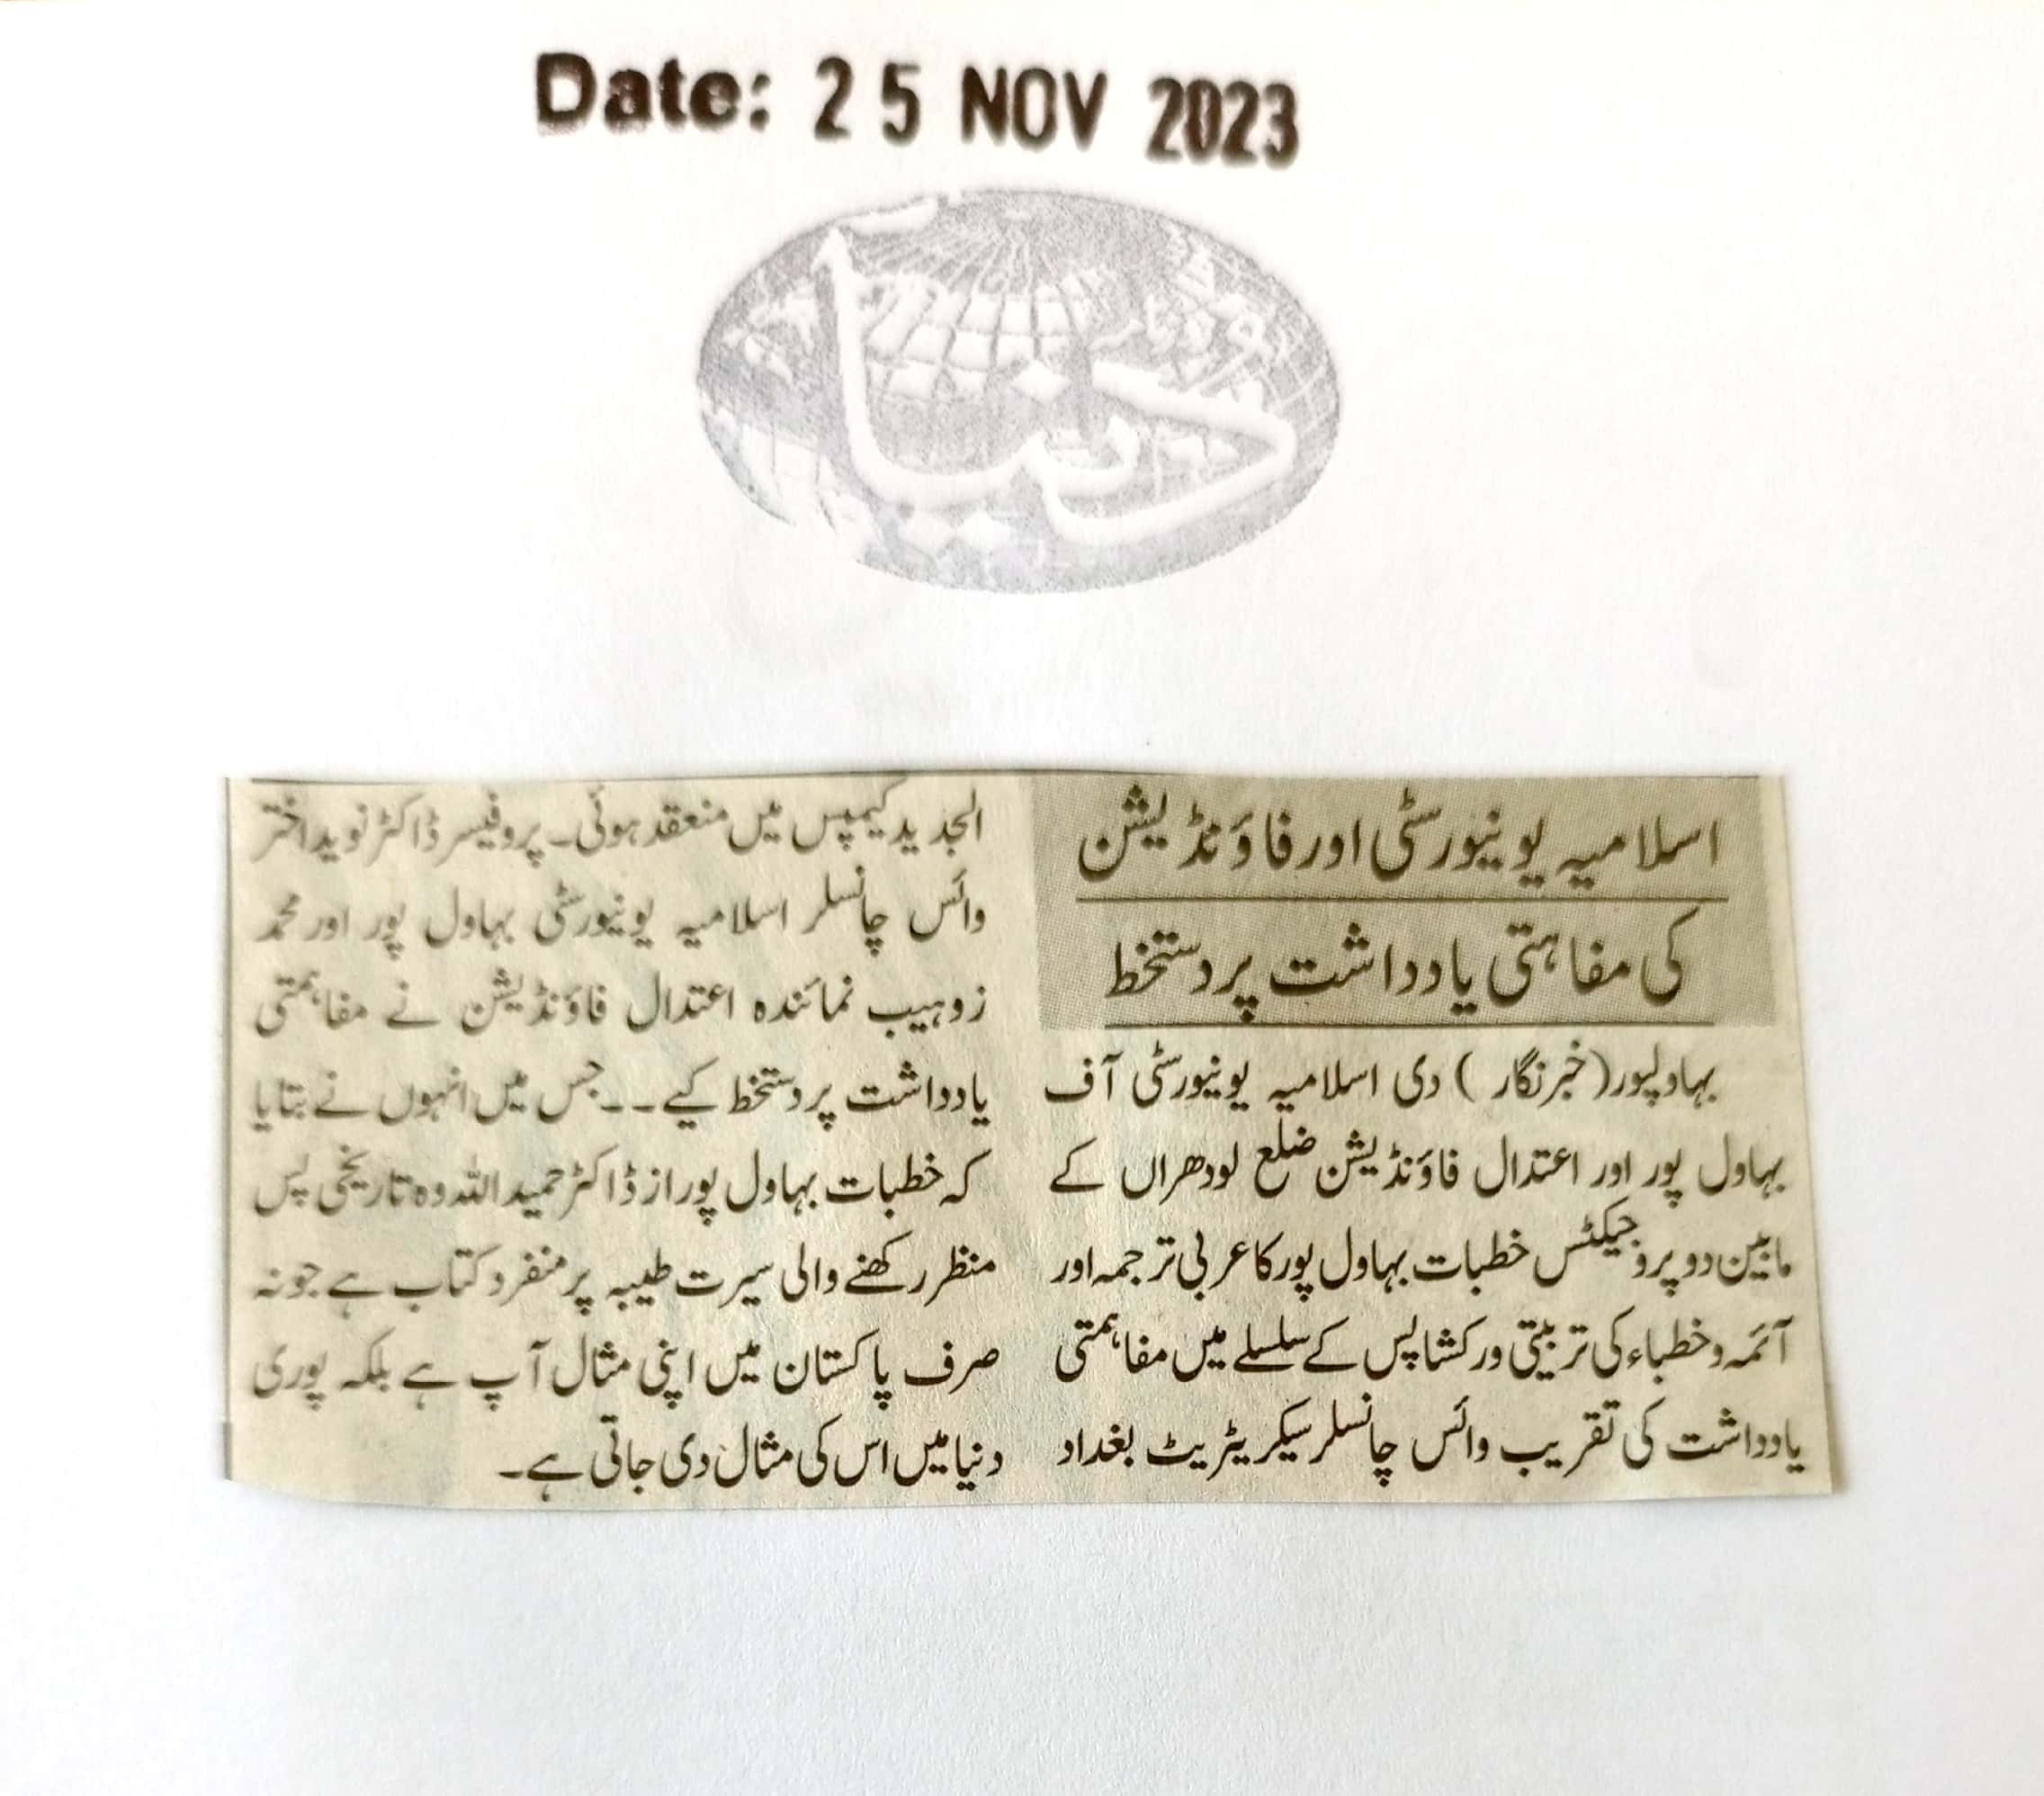 Date: 25 NOV 2023
روزنامہ
دنیا
اسلامیہ یونیورسٹی اور فاؤنڈیشن
کی مفاہتی یادداشت پر دستخط
بہاولپور(خبرنگار) دی اسلامیہ یونیورسٹی آف
بہاول پور اور اعتدال فاؤنڈیشن ضلع لودھراں کے
مابین دو پروجیکٹس خطبات بہاول پور کا عربی ترجمہ اور
آئمہ و خطباء کی تربیتی ورکشاپس کے سلسلے میں مفاہمتی
یادداشت کی تقریب وائس چانسلر سیکریٹریٹ بغداد
الجدید کیمپس میں منعقد ہوئی۔ پروفیسر ڈاکٹر نوید اختر
وائس چانسلر اسلامیہ یونیورسٹی بہاول پور اور محمد
زوہیب نمائندہ اعتدال فاؤنڈیشن نے مفاہمتی
یادداشت پر دستخط کیے۔۔جس میں انہوں نے بتایا
کہ خطبات بہاول پور از ڈاکٹر حمید اللہ وہ تاریخی پس
منظر رکھنے والی سیرت طیبہ پر منفرد کتاب ہے جو نہ
صرف پاکستان میں اپنی مثال آپ ہے بلکہ پوری
دنیا میں اس کی مثال دی جاتی ہے۔